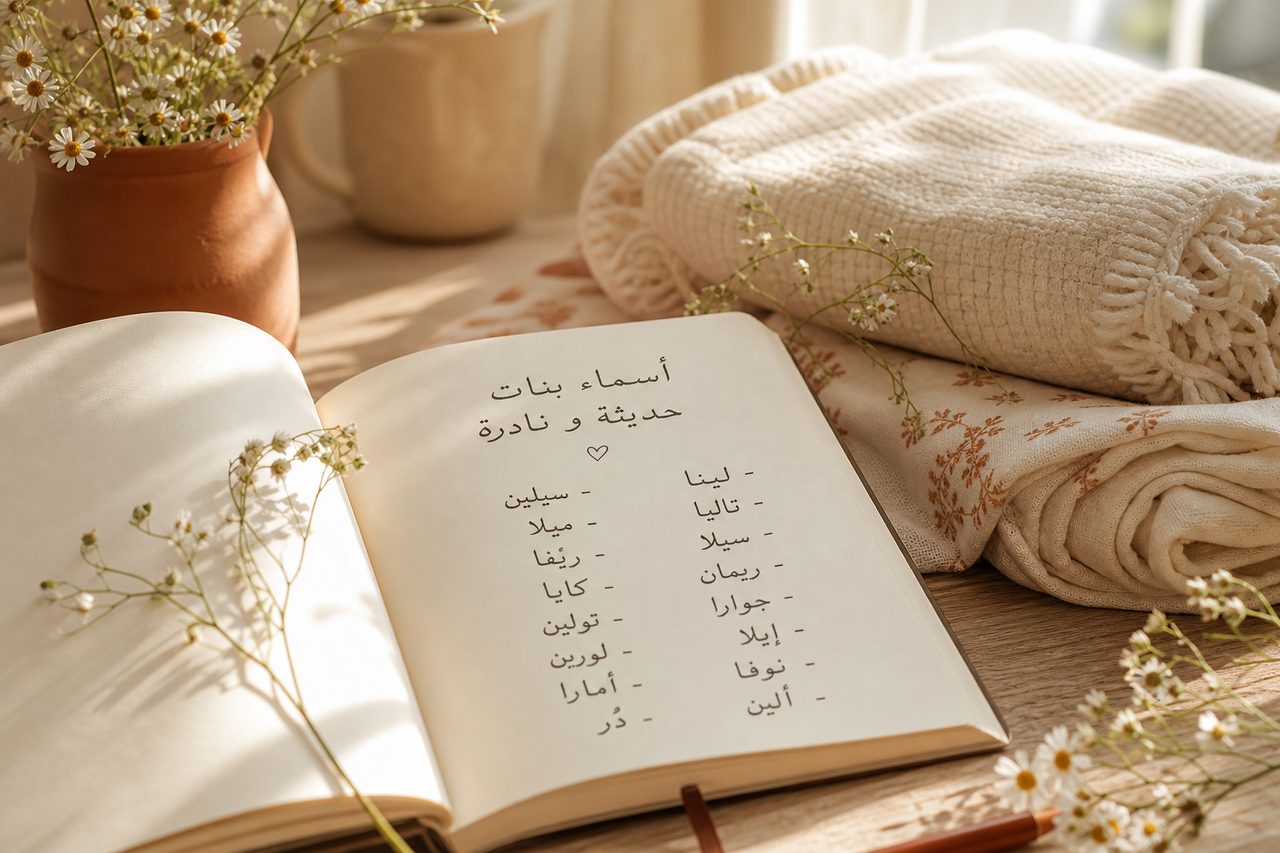 أسماء بنات
حديثة و نادرة
- لينا
- تاليا
- سيلا
- ريمان
- جوارا
- إيلا
- نوفا
- ألين
- سيلين
- ميلا
- رئفا
- كايا
- تولين
- لورين
- أمارا
- دُر